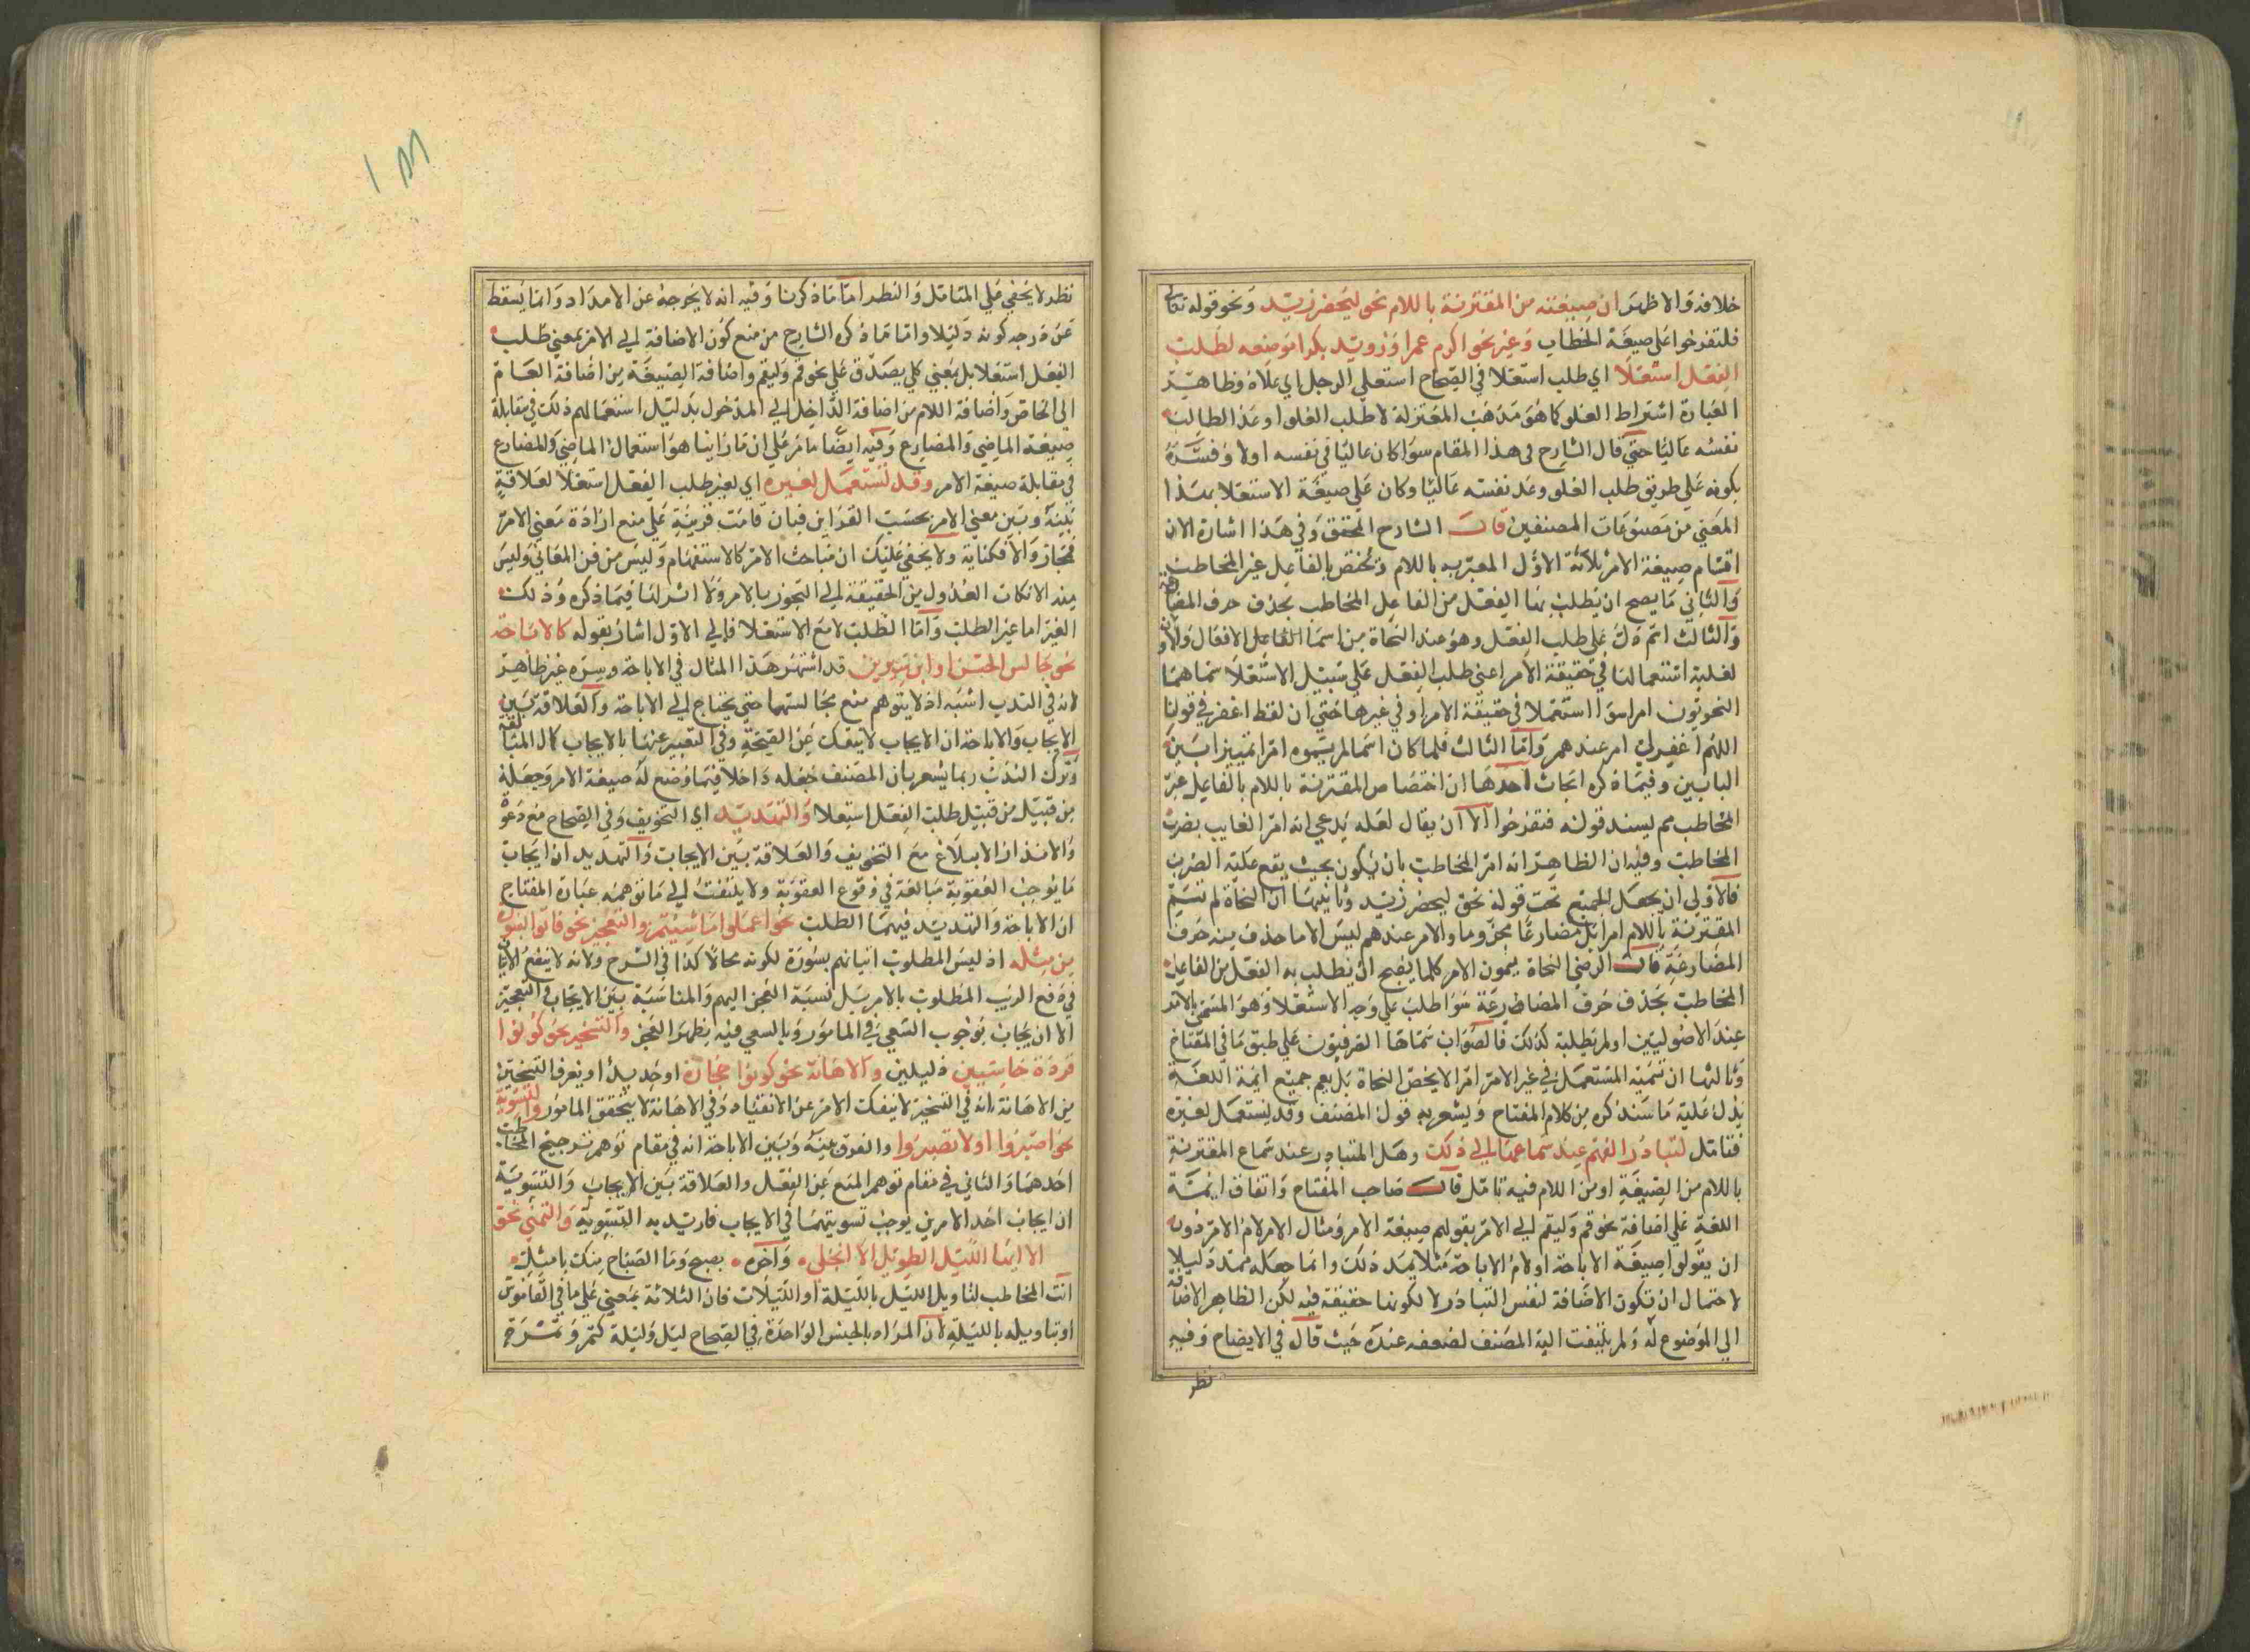 خلافه والاظهر ان صيغته من المقترنة باللام نحو ليحضر زيد ونحو قوله تعالى
فلتفرحوا على صيغة الخطاب وغيرنحو اكرم عمرا ورويد بكرا موضعه لطلب
الفعل استعلا اي طلب استعلا في الصحاح استعلى الرجل اي علاه وظاهر
العبارة اشتراط العلو كما هو مذهب المعتزلة لا طلب العلو او عد الطالب
نفسه عاليا حتى قال الشارح في هذا المقام سوا كان عاليا في نفسه اولا وفسره
بكونه على طريق طلب العلو وعد نفسه عاليا وكان على صيغة الاستعلا بهذا
المعنى من مصنوعات المصنفين قال الشارح المحقق وفي هذا اشارة الا ان
اقسام صيغة الامر ثلاثة الاول المعبر به باللام وتختص بالفاعل غير المخاطب
والثاني ما يصح ان يطلب بها الفعل من الفاعل المخاطب بحذف حرف المضارعة
والثالث اسم دل على طلب الفعل وهو عند النحاة من اسما الفاعل الافعال والاولان
لغلبة استعمالنا في حقيقة الامر اعني طلب الفعل على سبيل الاستعلا سماهما
النحويون امرا سوا استعملا في حقيقة الامر او في غيرها حتى ان لفظ اغفر في قولنا
اللهم اغفر لي امر عندهم واما الثالث فلما كان اسما لم يسموه امرا تمييزا بين
البابين وفيما ذكره ابحاث احدها ان اختصاص المقترنة باللام بالفاعل غير
المخاطب مم ليسند قوله فتفرحوا الا ان يقال لعله يدعي انه امر الغايب بضرب
المخاطب وفيه ان الظاهر انه امر المخاطب بان يكون بحيث يقع عليه الضرب
فالاولى ان يجعل الجميع تحت قوله نحو ليحضر زيد وثانيها ان النحاة لم تسم
المقترنة باللام امرا بل مضارعا مجزوما والامر عندهم ليس الا ما حذف منه حرف
المضارعة قال الرضي النحاة يسمون الامر كلما يصح ان يطلب به الفعل من الفاعل
المخاطب بحذف حرف المضارعة سوا طلب على وجه الاستعلا وهو المسمى بالامر
عند الاصوليين او لم يطلبه كذلك فالصواب سماها الصرفيون على طبق ما في المفتاح
وثالثها ان تسمية المستعمل في غير الامر امرا لا يخص النحاة بل يعم جميع ايمة اللغة
يدل عليه ما سنذكره من كلام المفتاح ويشعر به قول المصنف وقد يستعمل لغيره
فتامل لتبادر الفهم عند سماعها الي ذلك وهل المتبادر عند سماع المقترنة
باللام من الصيغة او من اللام فيه تامل قال صاحب المفتاح واتفاق ايمة
اللغة على اضافة نحو قم وليقم الي الامر بقولهم صيغة الامر ومثال الامر لام الامر دون
ان يقولوا صيغة الاباحة اولام الاباحة مثلا يمد ذلك وانما جعله ممد دليلا
لاحتمال ان تكون الاضافة لنفس التبادر لا لكونها حقيقة فيه لكن الظاهر الاضافة
الي الموضوع له ولم يلتفت اليه المصنف لضعفه عنده حيث قال في الايضاح وفيه
نظر
نظر لا يخفى على المتامل والنظر اما ما ذكرنا وفيه انه لا يخرجه عن الامداد وانما يسقط
عن درجه كونه دليلا واما ما ذكره الشارح من منع كون الاضافة الي الامر بمعنى طلب
الفعل استعلا بل بمعنى كلي يصدق على نحو قم وليقم واضافة الصيغة من اضافة العام
الى الخاص واضافة اللام من اضافة الداخل الي المدخول بدليل استعمالهم ذلك في مقابلة
صيغة الماضي والمضارع وفيه ايضا ما مر على ان ما راينا هو استعمال الماضي والمضارع
في مقابلة صيغة الامر وقد تستعمل لغيره اي لغير طلب الفعل استعلا لعلاقة
بينه وبين معنى الامر بحسب القراين فبان قامت قرينة على منع ارادة معنى الامر
فمجاز والا فكناية ولا يخفى عليك ان مباحث الامر كالاستفهام وليس من فن المعاني وليس
منه الا نكات العدول من الحقيقة الي التجوز بالامر ولا اثر لها فيما ذكره وذلك
الغير اما غير الطلب واما الطلب لا مع الاستعلا فالي الاول اشار بقوله كالاباحة
نحو جالس الحسن او ابن سيرين قد اشتهر هذا المثال في الاباحة وسره غير ظاهر
لانه في الندب اشبه اذ لا يتوهم منع مجالستهما حتى يحتاج الي الاباحة والعلاقة بين
الايجاب والاباحة ان الايجاب لا ينفك عن الصحة وفي التعبير عنها بالايجاب كمال المبالغة
وترك الندب ربما يشعر بان المصنف جعله داخلا فيما وضع له صيغة الامر وجعله
من قبيل من قبيل طلب الفعل استعلا والتهديد اي التخويف وفي الصحاح مع دعوة
والانذار الابلاغ مع التخويف والعلاقة بين الايجاب والتهديد ان ايجاب
ما يوجب العقوبة مبالغة في وقوع العقوبة ولا يلتفت الي ما توهمه عبارة المفتاح
ان الاباحة والتهديد فيهما الطلب نحو اعملوا ما شيتم والتعجيز نحو فاتوا بسورة
من مثله اذ ليس المطلوب اتيانهم بسورة لكونه محالا كذا في الشرح ولانه لا ينفع الاتيان
في دفع الريب المطلوب بالامر بل نسبة العجز اليهم والمناسبة بين الايجاب والتعجيز
الا ان يجاب بوجوب السعي في المامور وبالسعي فيه يظهر العجز والتسخير نحو كونوا
قردة خاسيين ذليلين والاهانة نحو كونوا حجارة او حديدا ويعرف التسخير
من الاهانة بانه في التسخير لا ينفك الامر عن الانقياد وفي الاهانة لا يتحقق المامور والتسوية
نحو اصبروا او لا تصبروا والفرق بينه وبين الاباحة انه في مقام توهم ترجيح المخاطب
احدهما والثاني في مقام توهم المنع عن الفعل والعلاقة بين الايجاب والتسوية
ان ايجاب احد الامرين يوجب تسويتهما في الايجاب فاريد به التسوية والتمني نحو
الا ايها الليل الطويل الا انجلي ۰ واخره ۰ بصبح وما الصباح منك بامثل ۰
انت المخاطب لتاويل الليل بالليلة او الليلات فان الثلاثة بمعنى على ما في القاموس
او بتاويله بالليلة لان المراد بالجنس الواحدة في الصحاح ليل وليلة كتمر وتمرة